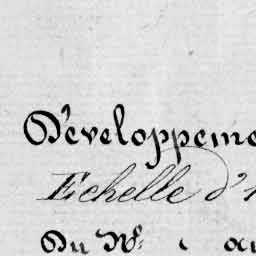 Développeme
Echelle d'1
Du N.° 1 au